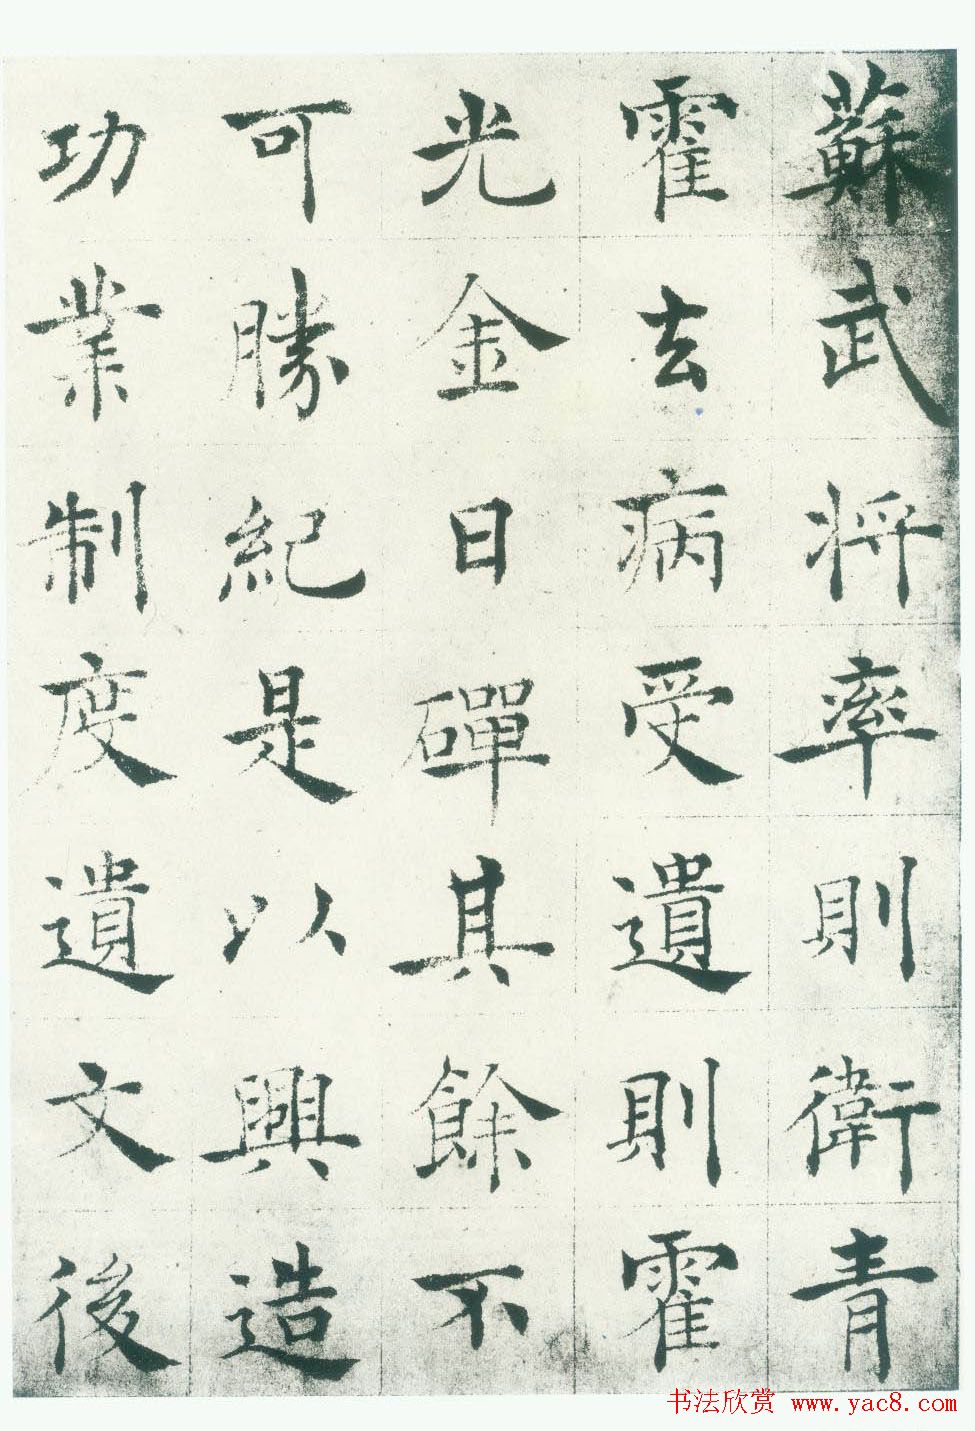 蘇武將率則衛青
霍去病受遺則霍
光金日磾其餘不
可勝紀是以興造
功業制度遺文後
书法欣赏 www.yac8.com